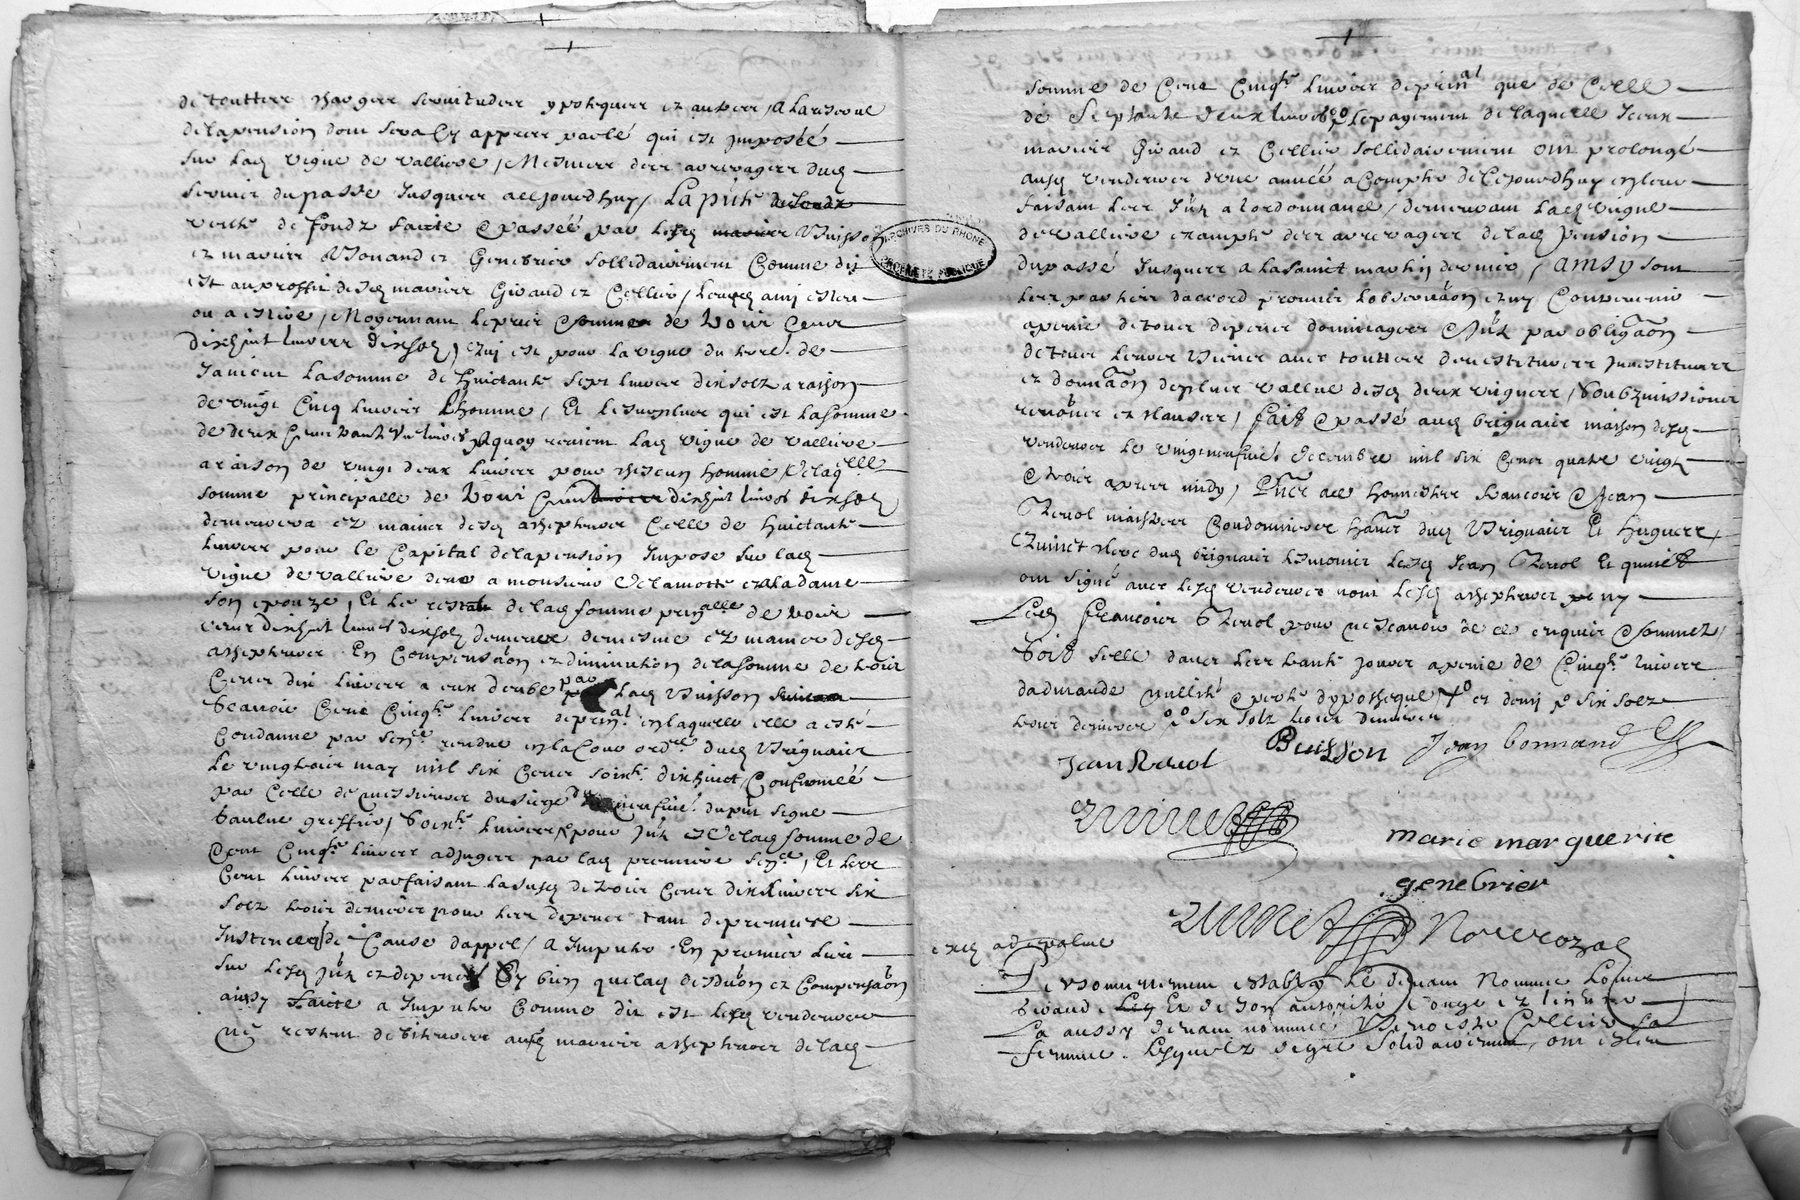 de touttes charges servitudes ypotheques et autres, a la reserve
de la pension dont sera cy appres parlé qui est imposéé
sur lad vigne de valliere, Mesmes des arreyrages dud
servier du passé jusques a cejourdhuy, La pnte
vente de fondz faicte & passéé par lesd Buisson
et mariés Bonand et Genebrier sollidairement Comme dit
est au proffit desd mariés Giraud et Cellier,
ou a eslire, Moyennant le prix & somme de trois Cens
dixhuit livres dixsolz, qui est pour la vigne du
la somme de huictante sept livres dix solz a raison
de vingt Cinq livres L'homme, Et le surplus qui est la somme
de deux Cens trante un livres a quoy revient lad vigne de valliere
a raison de vingt deux livres pour chescun homme, De laqlle
somme principalle de trois Cens dixhuit livres dixsolz
demeurera ez mains desd achepteurs Celle de huictante
livres pour le Capital de la pension Imposé sur lad
vigne de valliere deue a monsieur Delamotte et a la dame
son epouze, Et le restat de lad somme prinalle de trois
cens dixhuit livres dixsolz demeure de mesme ez mains desd
achepteurs En Compensaon et diminution de la somme de trois
Cens dix livres a eux deube par lad Buisson
Scavoir Cent Cinqte livres de prinal en laquelle elle a esté
Condanné par sence rendue en la Cour ordre dud Brignais
Le vingtrois may mil six Cens soixte dixhuict, Confirméé
par Celle de Messieurs du siege du pnt signe
Saulne greffier, Soixte livres pour intz de lad somme de
Cent Cinqte livres adjugez par lad premiere sence, Et les
Cent livres parfaisant la susd de trois Cens dix livres six
solz trois deniers pour les depens tant de premiere
Instence que de Cause dappel, a Imputer En premier lieu
sur lesd intz et depens Sy bien que lad deduon et Compensaon
ainsy faicte a Imputer Comme dit est lesd vendeurs
ne restent debiteurs ausd mariés achepteurs de lad
somme de Cent Cinqte livres de prinal que de Celle
de Septante deux livres po le payement de laquelle Iceux
mariés Giraud et Cellier sollidairement ont prolongé
ausd vendeurs d'une annéé a Compter de Cejourdhuy en leur
faisant les intz a l'ordonnance, demeurant lad vigne
de valliere exampte des arreyrages de lad pension
du passé Jusques a la Sainct martin dernier, Ainsy sont
les parties d'accord promis l'observaon et ny Contrevenir
a peine de tous depens dommages & intz par obligaon
de tous leurs biens avec touttes devestitures investitures
et donnaon de plus vallue desd deux vignes, Soubzmissions
renonces et clauses, fait & passé aud brignais maison desd
vendeurs Le vingtneufie decembre mil six Cens quatre vingtz
& trois apres midy, Pnce de honnestes francois & Jean
Revol maistres Cordonniers habit dud Brignais Et hugues
Quinet clerc dud brignais tesmoins lesd Jean Revol Et quinet
ont signé avec lesd vendeurs non lesd achepteurs pe ny
Led francois Revol pour ne scavoir de ce enquis & sommez,
Soit sellé dans les trante jours a peine de Cinqte livres
damande nullité & perte dypotheque, et demy po six solz
trois deniers
Jean Revol Buisson Jean bonnand
quinet
marie marguerite
genebrier
quinet
Personnellement establys Le devant Nommé
Giraud Et de son autorité Conge et licence
La aussy devant nommée Benoiste Cellier sa
femme. Lesquelz de gré solidairement, ont
ARCHIVES DU RHONE
PROPRIETE PUBLIQUE